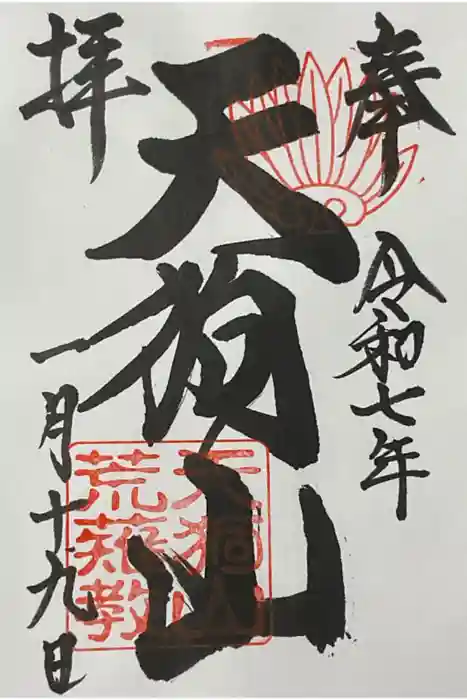 奉
拝
令和七年
天狗山
一月十九日
天狗山
荒薙教